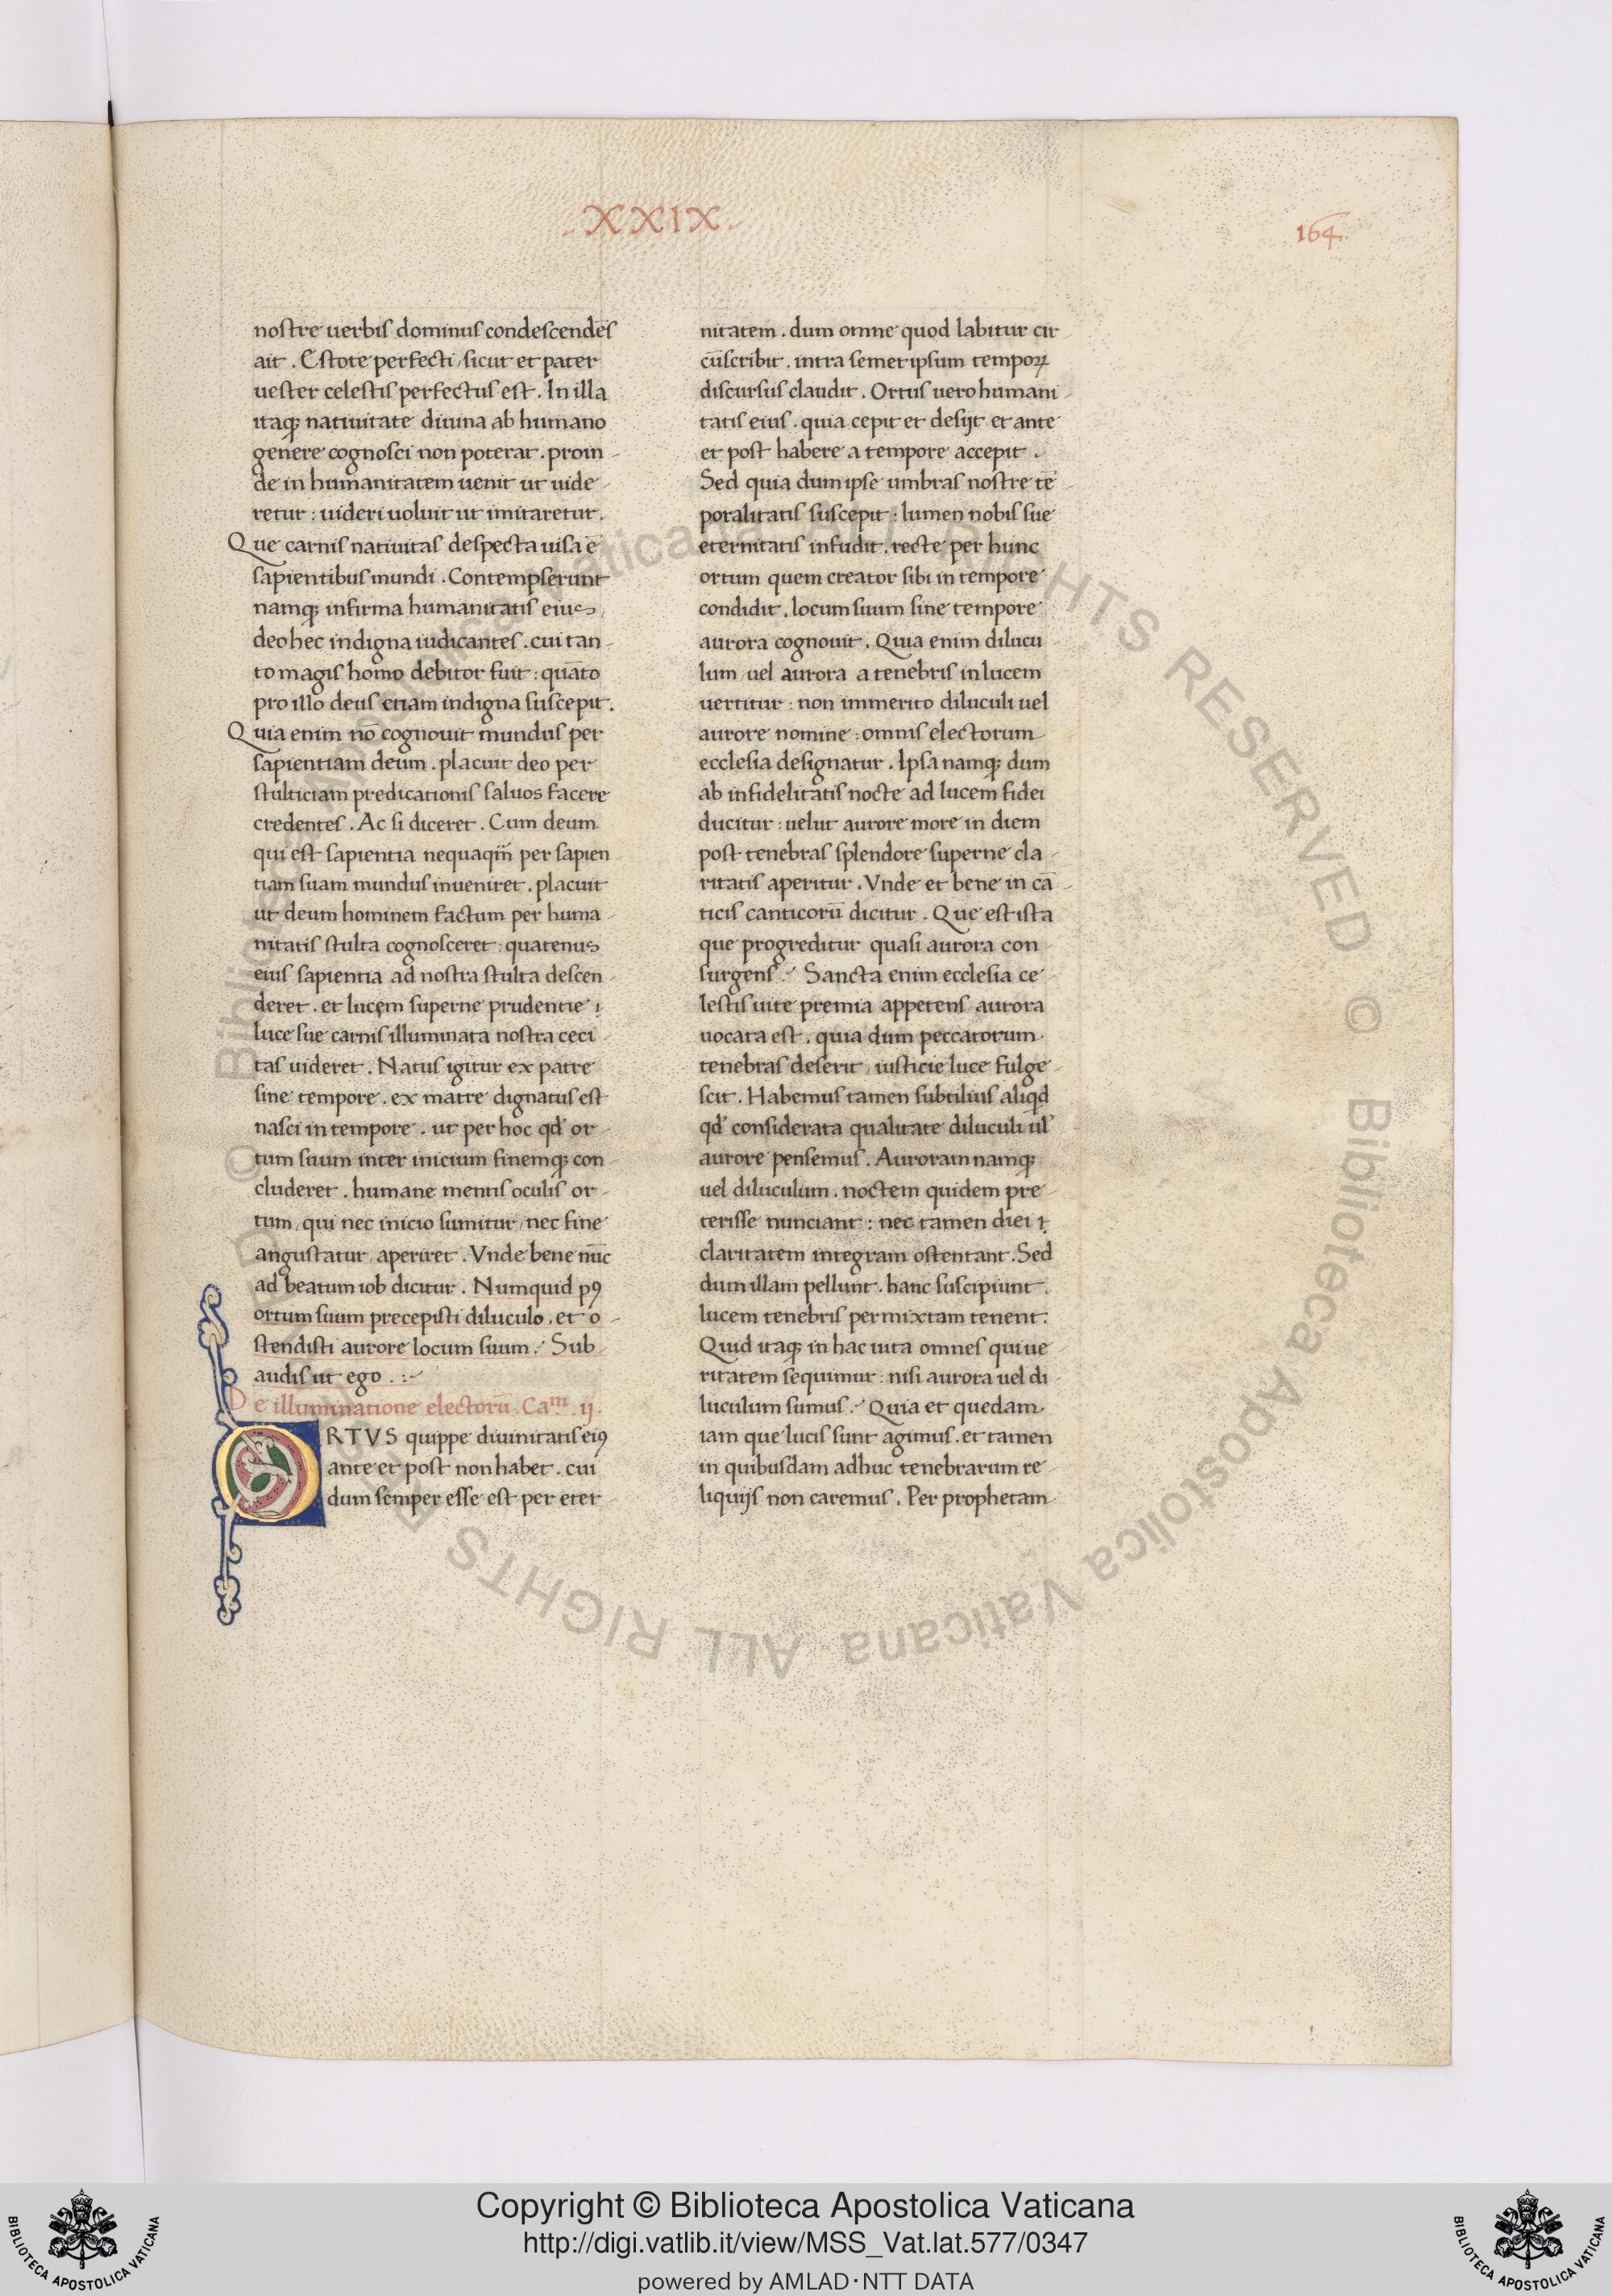 .XXIX.
164.
nostre uerbis dominus condescendēs
ait . Estote perfecti / sicut et pater
uester celestis perfectus est . In illa
itaq; natiuitate diuina ab humano
genere cognosci non poterat . proin-
de in humanitatem uenit ut uide-
retur : uideri uoluit ut imitaretur.
Que carnis natiuitas despecta uisa ē
sapientibus mundi . Contempserunt
namq; infirma humanitatis eius,
deo hec indigna iudicantes . cui tan-
to magis homo debitor fuit : quāto
pro illo deus etiam indigna suscepit.
Quia enim nō cognouit mundus per
sapientiam deum . placuit deo per
stulticiam predicationis saluos facere
credentes . Ac si diceret . Cum deum
qui est sapientia nequaqm̄ per sapien
tiam suam mundus inueniret . placuit
ut deum hominem factum per huma-
nitatis stulta cognosceret : quatenus
eius sapientia ad nostra stulta descen-
deret . et lucem superne prudentie i
luce sue carnis illuminata nostra ceci-
tas uideret . Natus igitur ex patre
sine tempore . ex matre dignatus est
nasci in tempore . ut per hoc qd' or-
tum suum inter inicium finemq; con-
cluderet . humane mentis oculis or-
tum / qui nec inicio sumitur / nec fine
angustatur / aperiret . Vnde bene nūc
ad beatum iob dicitur . Numquid pꝯ
ortum suum precepisti diluculo . et o-
stendisti aurore locum suum :' Sub-
audis ut ego . :-
De illuminatione electorū. Caᵐ. ij.
ORTVS quippe diuinitatis eiꝯ
ante et post non habet . cui
dum semper esse est per eter-
nitatem . dum omne quod labitur cir-
cūscribit . intra semetipsum tempoꝝ
discursus claudit . Ortus uero humani-
tatis eius . quia cepit et desijt et ante
et post habere a tempore accepit .
Sed quia dum ipse umbras nostre tē-
poralitatis suscepit : lumen nobis sue
eternitatis infudit . recte per hunc
ortum quem creator sibi in tempore
condidit . locum suum sine tempore
aurora cognouit . Quia enim dilucu-
lum / uel aurora a tenebris in lucem
uertitur : non immerito diluculi uel
aurore nomine : omnis electorum
ecclesia designatur . Ipsa namq; dum
ab infidelitatis nocte ad lucem fidei
ducitur : uelut aurore more in diem
post tenebras splendore superne cla-
ritatis aperitur . Vnde et bene in cā-
ticis canticorū dicitur . Que est ista
que progreditur quasi aurora con-
surgens :' Sancta enim ecclesia ce-
lestis uite premia appetens / aurora
uocata est . quia dum peccatorum
tenebras deserit / iusticie luce fulge-
scit . Habemus tamen subtilius aliqd
qd' considerata qualitate diluculi ul'
aurore pensemus . Auroram namq;
uel diluculum . noctem quidem pre-
terisse nunciant : nec tamen diei i
claritatem integram ostentant . Sed
dum illam pellunt . hanc suscipiunt .
lucem tenebris permixtam tenent.
Quid itaq; in hac uita omnes qui ue-
ritatem sequimur : nisi aurora uel di-
luculum sumus :' Quia et quedam
iam que lucis sunt agimus . et tamen
in quibusdam adhuc tenebrarum re-
liquijs non caremus . Per prophetam
© Biblioteca Apostolica Vaticana ALL RIGHTS RESERVED © Biblioteca Apostolica Vaticana ALL RIGHTS RESERVED
Copyright © Biblioteca Apostolica Vaticana
http://digi.vatlib.it/view/MSS_Vat.lat.577/0347
powered by AMLAD·NTT DATA
BIBLIOTECA APOSTOLICA VATICANA
BIBLIOTECA APOSTOLICA VATICANA